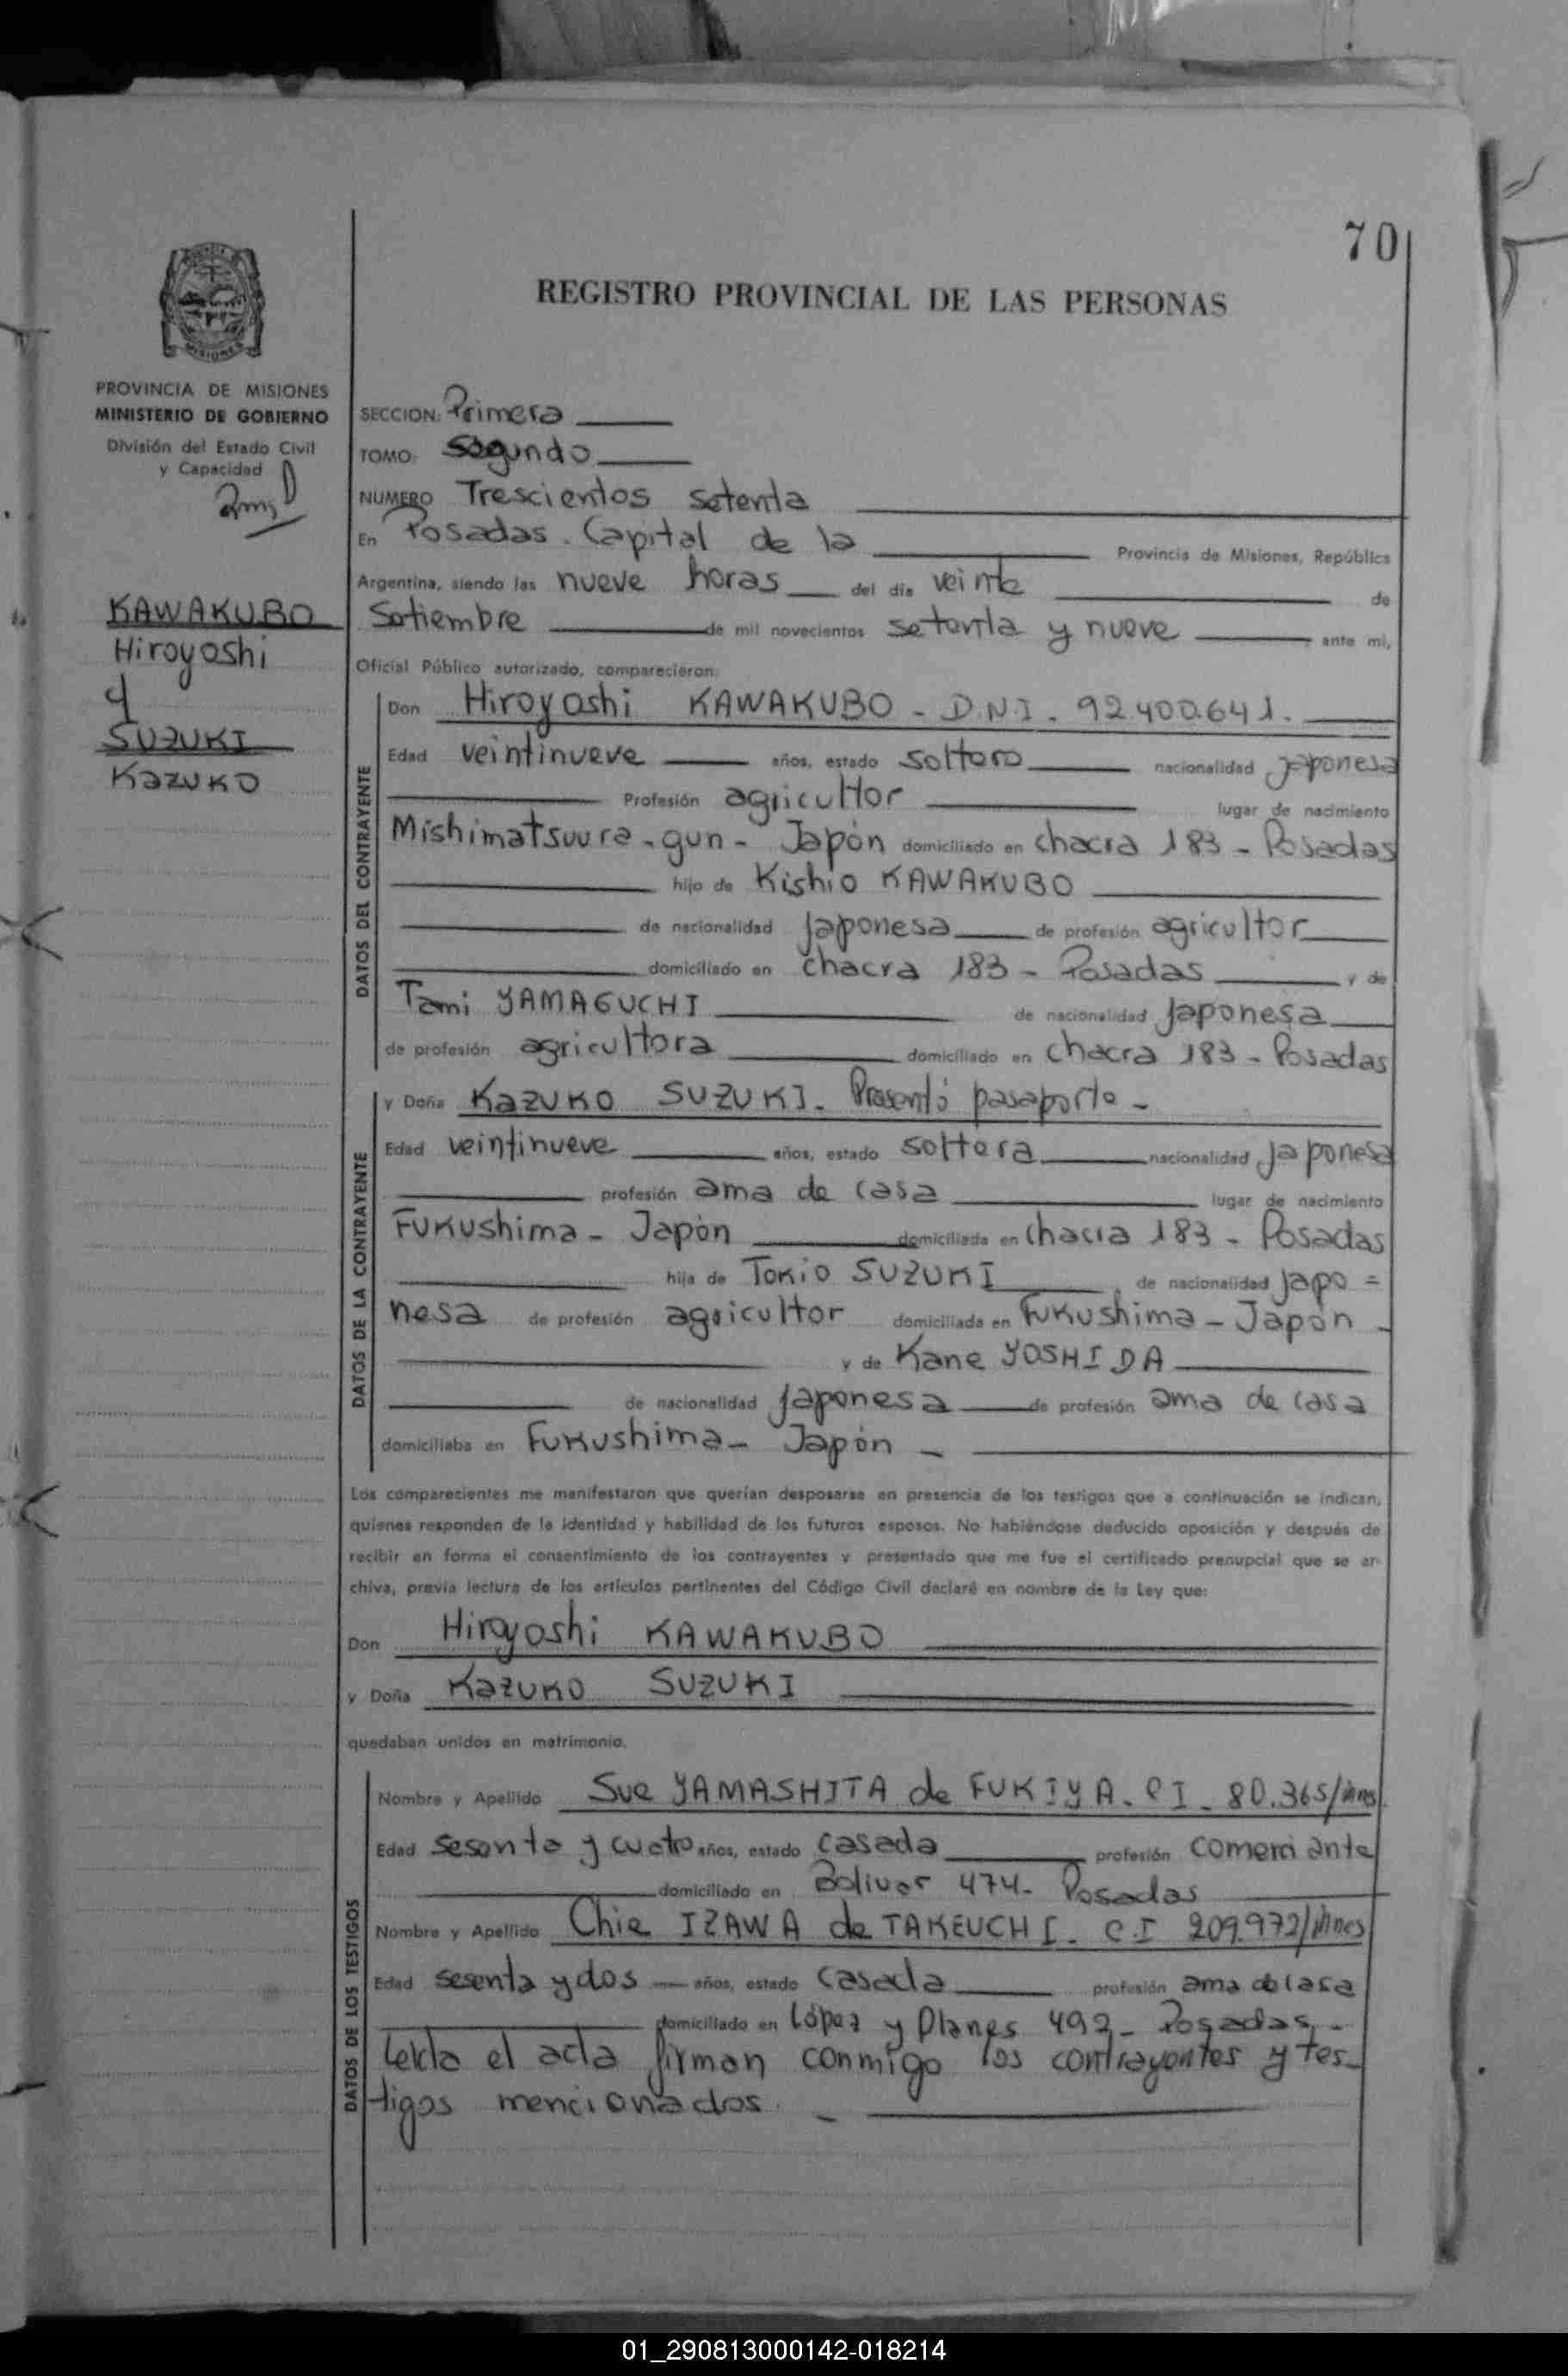 70
REGISTRO PROVINCIAL DE LAS PERSONAS
MISIONES
PROVINCIA DE MISIONES
MINISTERIO DE GOBIERNO
División del Estado Civil
y Capacidad
KAWAKUBO
Hiroyoshi
y
SUZUKI
Kazuko
SECCION: Primera
TOMO: Segundo
NUMERO Trescientos setenta
En Posadas. Capital de la Provincia de Misiones, República
Argentina, siendo las nueve horas del día veinte de
Setiembre de mil novecientos setenta y nueve ante mi,
Oficial Público autorizado, comparecieron:
DATOS DEL CONTRAYENTE
Don Hiroyoshi KAWAKUBO - D.N.I. 92.400.641.
Edad veintinueve años, estado soltero nacionalidad japonesa
Profesión agricultor lugar de nacimiento
Mishimatsuura-gun - Japón domiciliado en chacra 183 - Posadas
hijo de Kishio KAWAKUBO
de nacionalidad japonesa de profesión agricultor
domiciliado en chacra 183 - Posadas y de
Tami YAMAGUCHI de nacionalidad japonesa
de profesión agricultora domiciliado en chacra 183 - Posadas
DATOS DE LA CONTRAYENTE
y Doña Kazuko SUZUKI. Presentó pasaporte -
Edad veintinueve años, estado soltera nacionalidad japonesa
profesión ama de casa lugar de nacimiento
Fukushima - Japón domiciliada en chacra 183 - Posadas
hija de Tokio SUZUKI de nacionalidad japo=
nesa de profesión agricultor domiciliada en Fukushima - Japón -
y de Kane YOSHIDA
de nacionalidad japonesa de profesión ama de casa
domiciliaba en Fukushima - Japón -
Los comparecientes me manifestaron que querían desposarse en presencia de los testigos que a continuación se indican,
quienes responden de la identidad y habilidad de los futuros esposos. No habiéndose deducido oposición y después de
recibir en forma el consentimiento de los contrayentes y presentado que me fue el certificado prenupcial que se ar-
chiva, previa lectura de los artículos pertinentes del Código Civil declaré en nombre de la Ley que:
Don Hiroyoshi KAWAKUBO
y Doña Kazuko SUZUKI
quedaban unidos en matrimonio.
DATOS DE LOS TESTIGOS
Nombre y Apellido Sue YAMASHITA de FUKIYA. CI - 80.365/Mnes
Edad sesenta y cuatro años, estado casada profesión comerciante
domiciliado en Bolivar 474- Posadas
Nombre y Apellido Chie IZAWA de TAKEUCHI. C.I 209.972/Mnes
Edad sesenta y dos años, estado casada profesión ama de casa
domiciliado en López y Planes 492- Posadas.-
Leida el acta firman conmigo los contrayentes y tes-
tigos mencionados. -
01_290813000142-018214